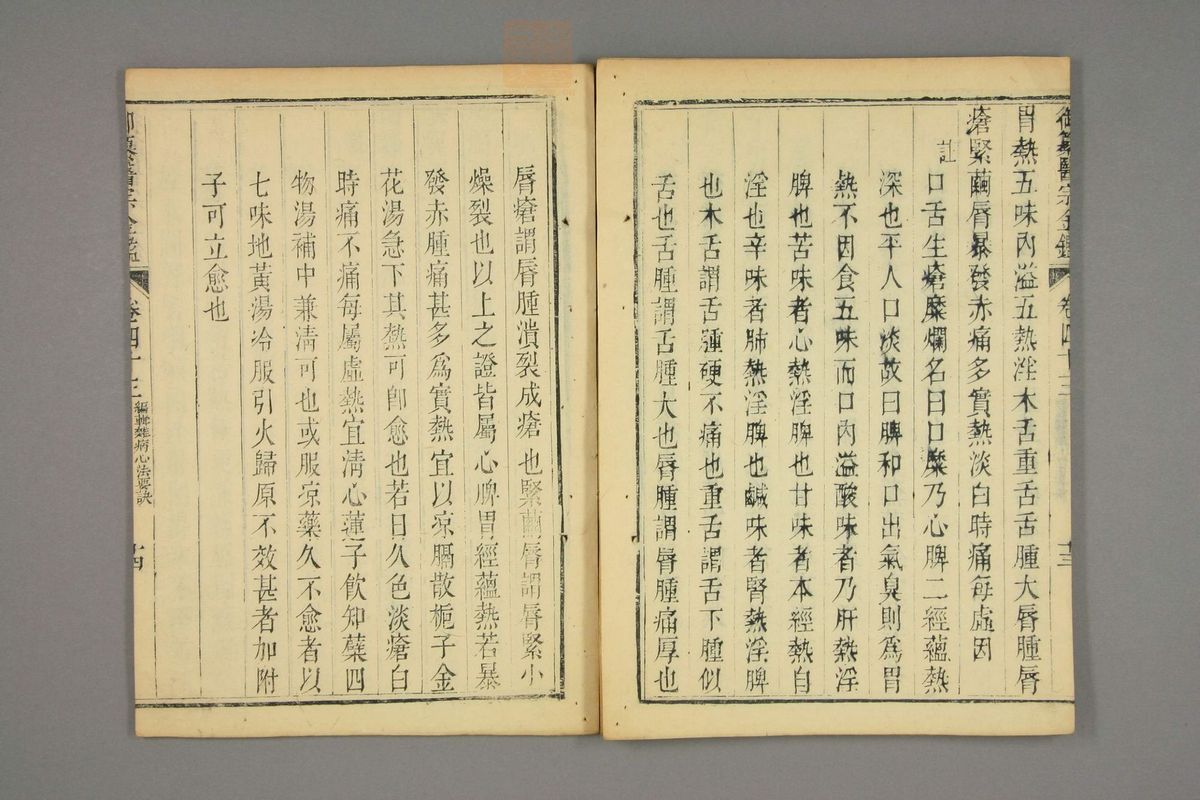 御纂醫宗金鑑 卷四十三 十三
胃熱五味內溢五熱淫木舌重舌舌腫大唇腫唇
瘡緊繭唇暴發赤痛多實熱淡白時痛每虛因
註口舌生瘡糜爛名曰口糜乃心脾二經蘊熱
深也平人口淡故曰脾和口出氣臭則為胃
熱不因食五味而口內溢酸味者乃肝熱淫
脾也苦味者心熱淫脾也甘味者本經熱自
淫也辛味者肺熱淫脾也鹹味者腎熱淫脾
也木舌謂舌腫硬不痛也重舌謂舌下腫似
舌也舌腫謂舌腫大也唇腫謂唇腫痛厚也
唇瘡謂唇腫潰裂成瘡也緊繭唇謂唇緊小
燥裂也以上之證皆屬心脾胃經蘊熱若暴
發赤腫痛甚多為實熱宜以凉膈散梔子金
花湯急下其熱可卽愈也若日久色淡瘡白
時痛不痛每屬虛熱宜清心蓮子飲知蘗四
物湯補中兼清可也或服凉藥久不愈者以
七味地黃湯冷服引火歸原不效甚者加附
子可立愈也
御纂醫宗金鑑 卷四十三 編輯雜病心法要訣 十四